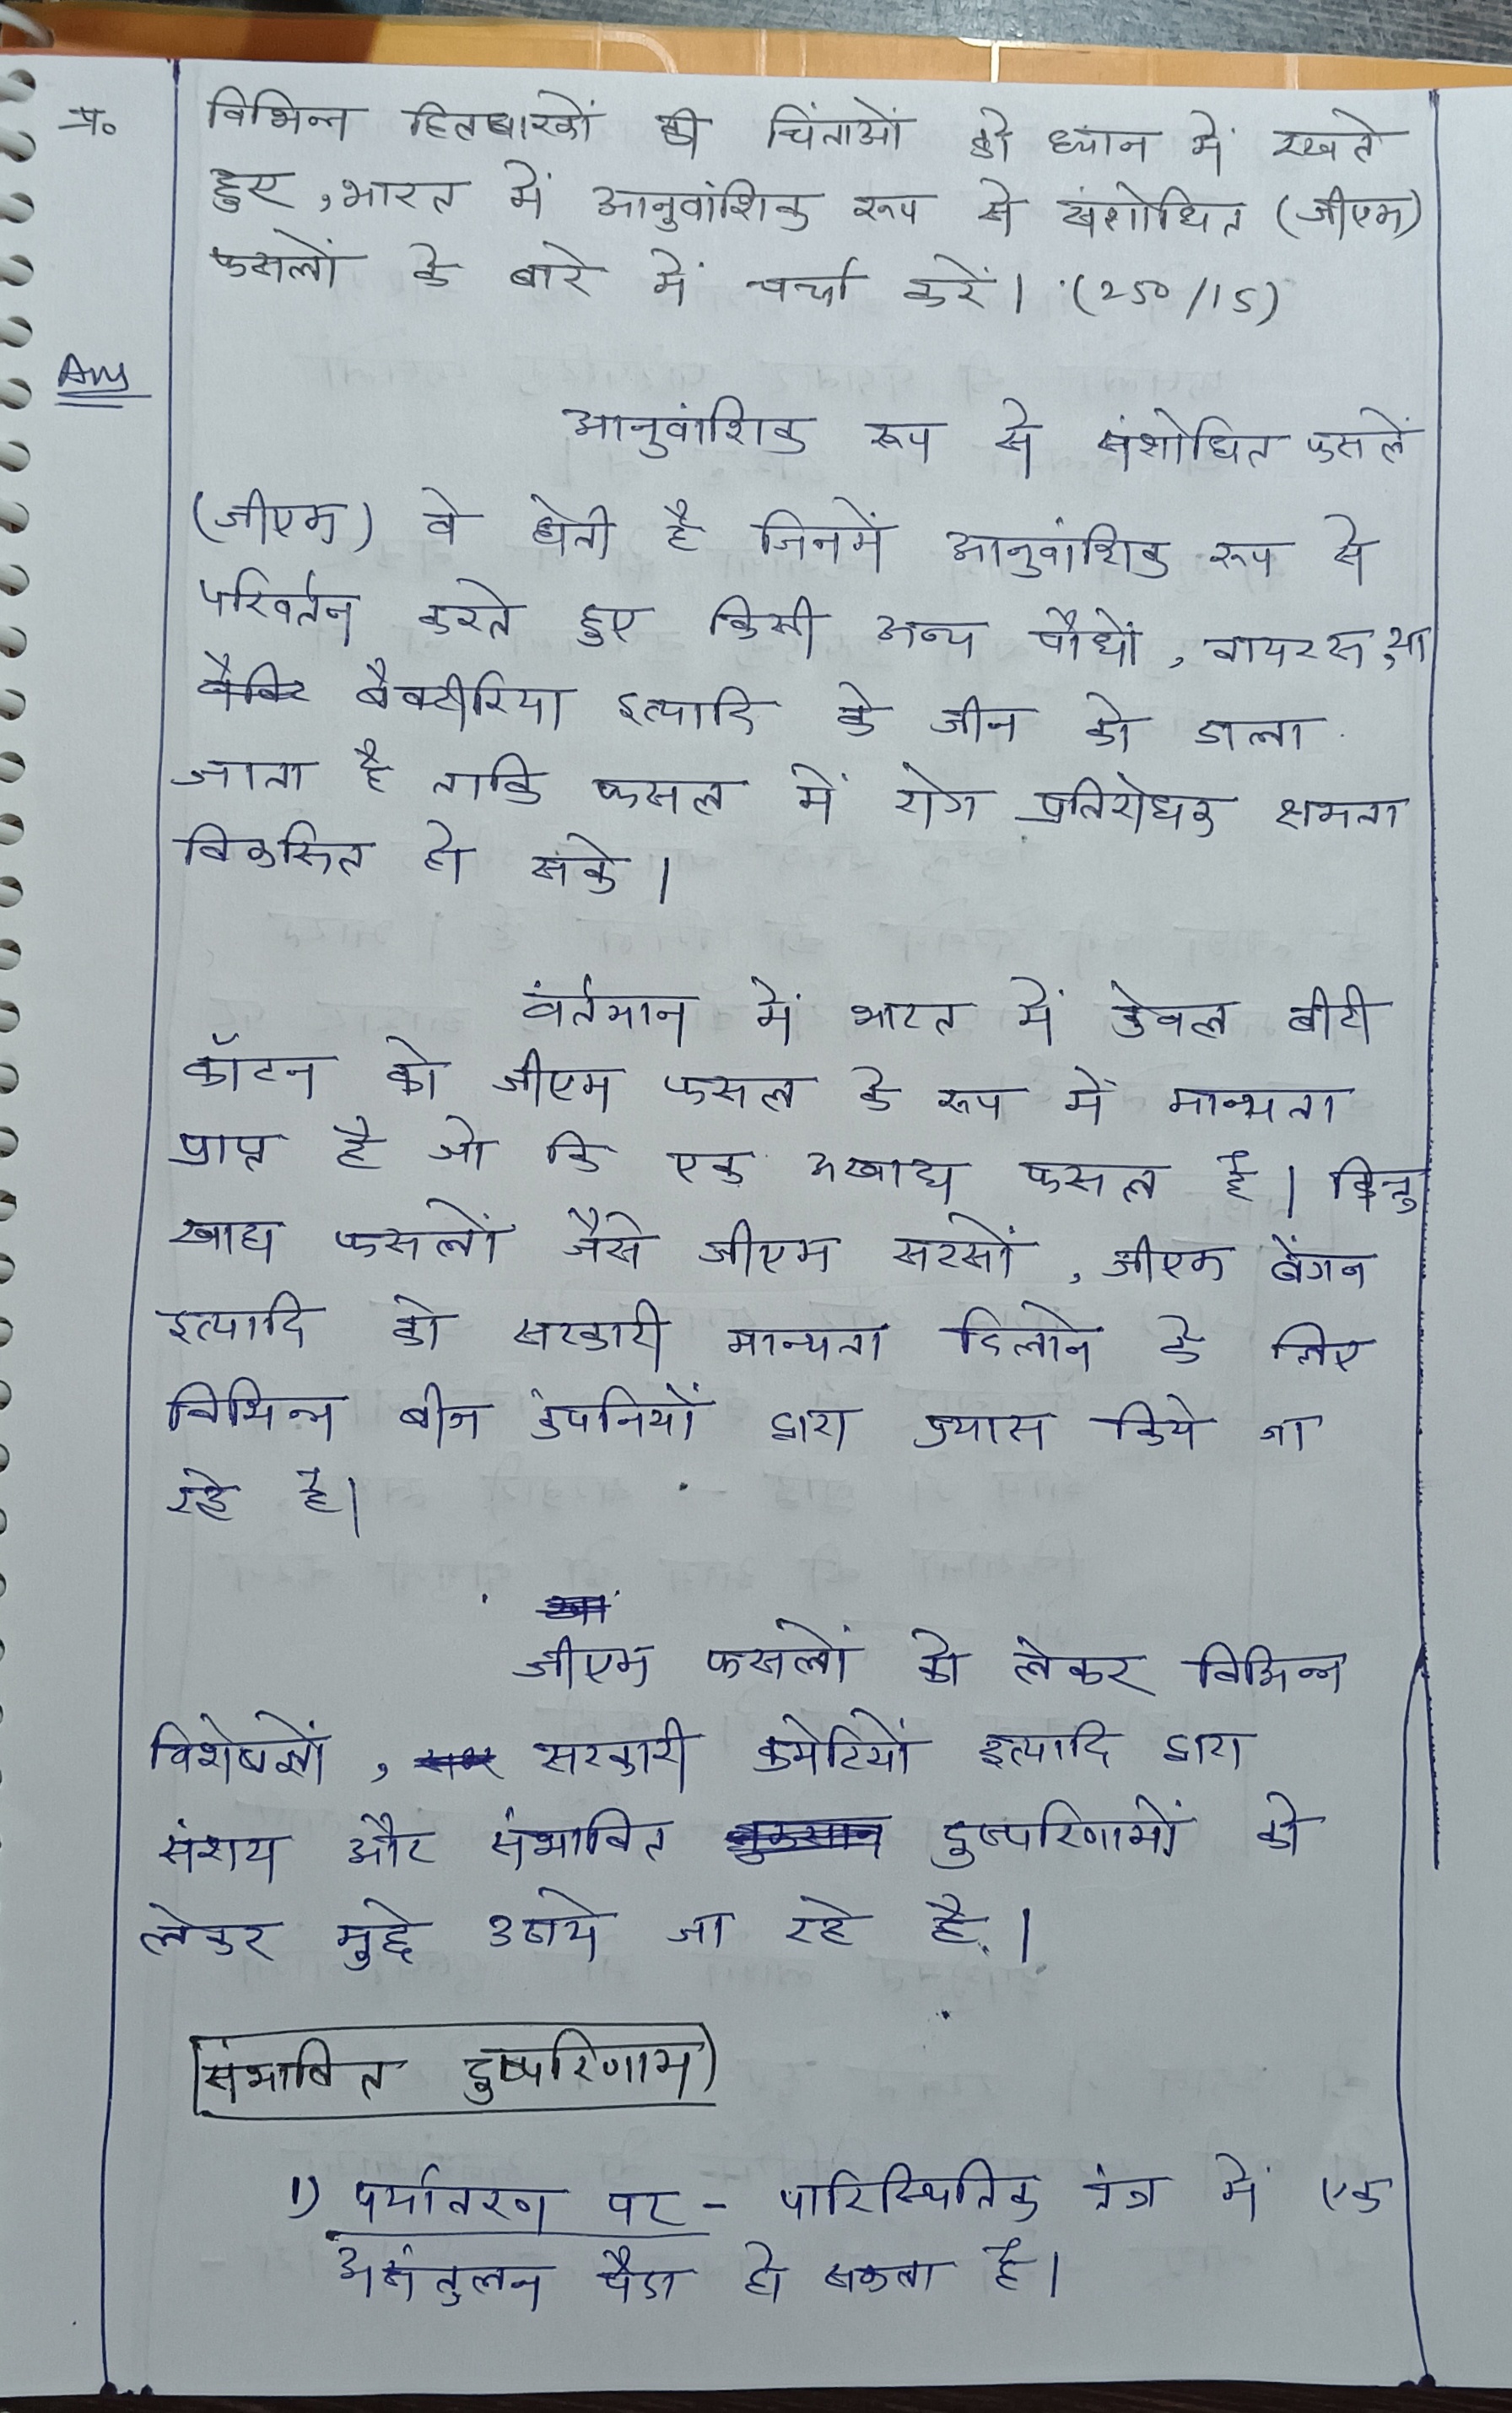 प्र०
विभिन्न हितधारकों की चिंताओं को ध्यान में रखते
हुए, भारत में आनुवांशिक रूप से संशोधित (जीएम)
फसलों के बारे में चर्चा करें। (250/15)
Ans
आनुवांशिक रूप से संशोधित फसलें
(जीएम) वे होती है जिनमें आनुवांशिक रूप से
परिवर्तन करते हुए किसी अन्य पौधों, वायरस, या
बैक्टीरिया इत्यादि के जीन को डाला
जाता है ताकि फसल में रोग प्रतिरोधक क्षमता
विकसित हो सके।
वर्तमान में भारत में केवल बीटी
कॉटन को जीएम फसल के रूप में मान्यता
प्राप्त है जो कि एक अखाद्य फसल है। किन्तु
खाद्य फसलों जैसे जीएम सरसों, जीएम बैंगन
इत्यादि को सरकारी मान्यता दिलाने के लिए
विभिन्न बीज कंपनियों द्वारा प्रयास किये जा
रहे है।
जीएम फसलों को लेकर विभिन्न
विशेषज्ञों, सरकारी कमेटियों इत्यादि द्वारा
संशय और संभावित दुष्परिणामों को
लेकर मुद्दे उठाये जा रहे है।
संभावित दुष्परिणाम
1) पर्यावरण पर - पारिस्थितिक तंत्र में एक
असंतुलन पैदा हो सकता है।